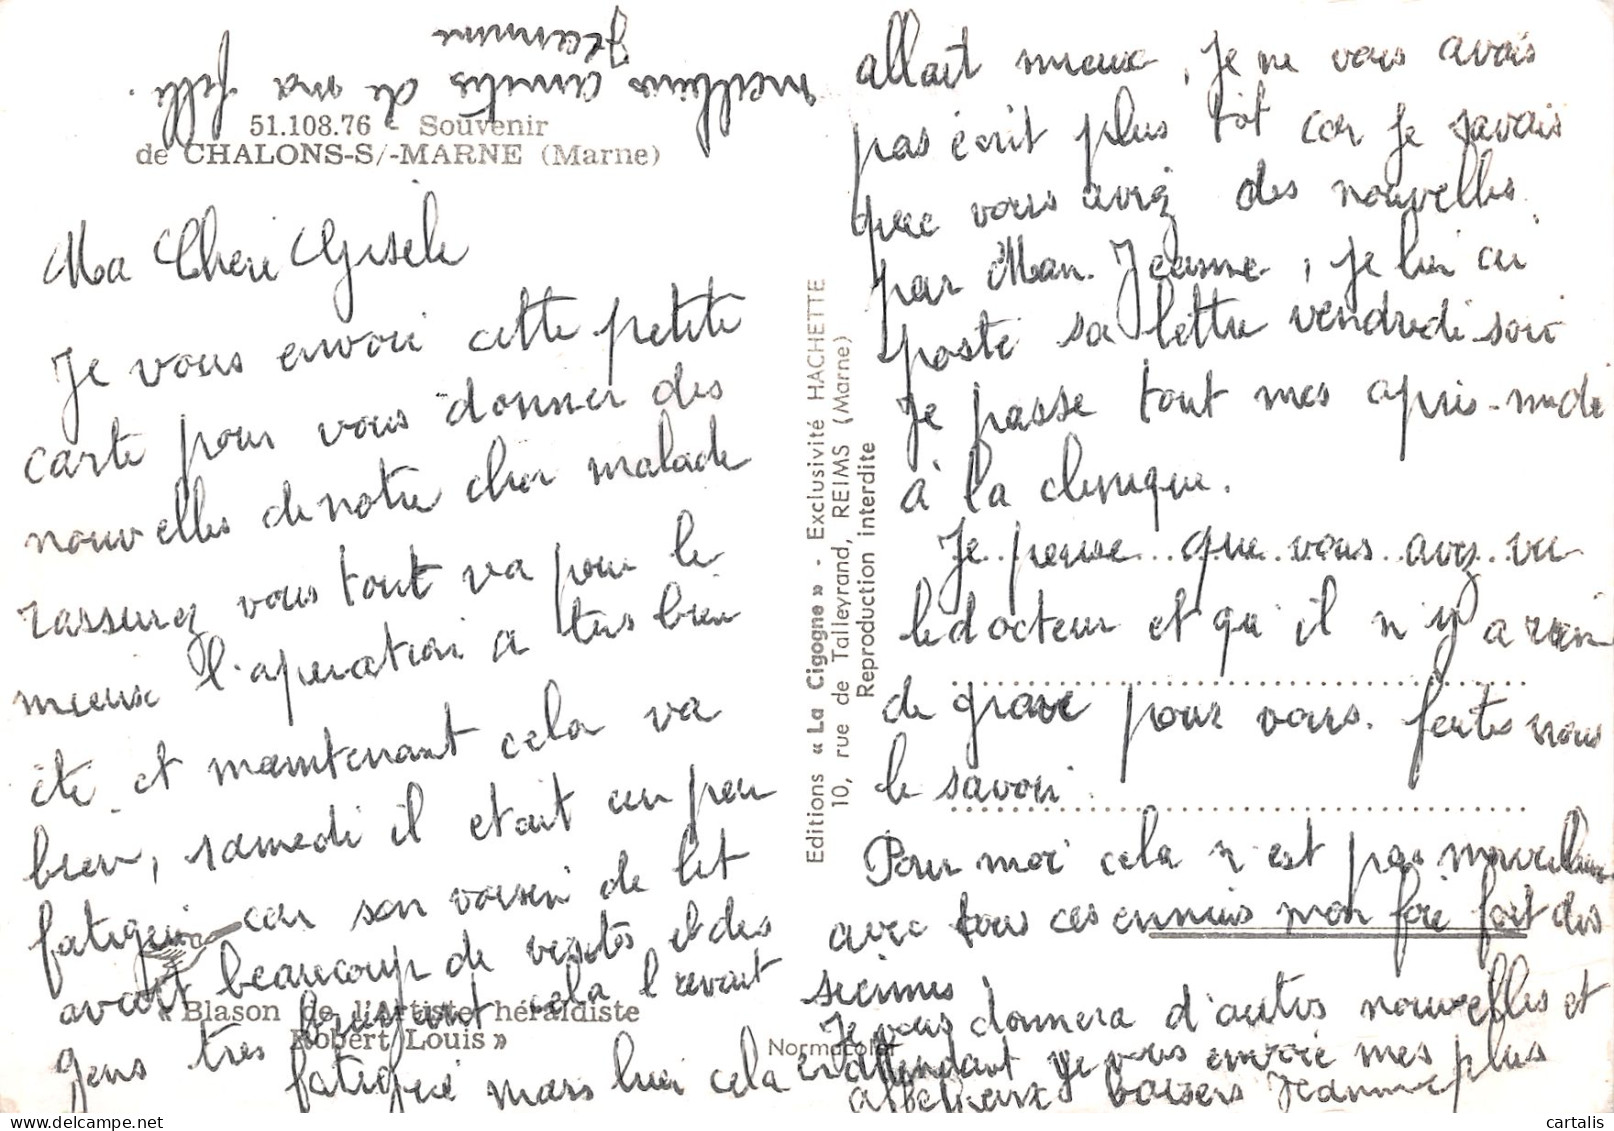 meilleurs amitiés de ma fille.
Jeannine
51.108.76 - Souvenir
de CHALONS-S/-MARNE (Marne)
Ma Cheri Gisèle
Je vous envoi cette petite
carte pour vous donner des
nouvelles de notre cher malade
rassurez vous tout va pour le
mieux l'operation a tres bien
été et maintenant cela va
bien, samedi il etait un peu
fatigué car son voisin de lit
avait beaucoup de visites et des
gens tres bruyant cela l'
fatigué mars lui cela
« Blason de l'artiste héraldiste
Robert Louis »
Editions « La Cigogne » - Exclusivité HACHETTE
10, rue de Talleyrand, REIMS (Marne)
Reproduction interdite
Normacolor
allait mieux, je ne vous avais
pas écrit plus tôt car je savais
que vous aviez des nouvelles
par Man. Jeanne, je lui ai
posté sa lettre vendredi soir
Je passe tout mes apris-midi
à la clinique.
Je pense que vous avez vu
le docteur et qu il n'y a rien
de grave pour vous. feites nous
le savoir
Pour moi cela n'est pas merveilleux
avec tous ces ennuis mon foie fait des
siennes,
Je vous donnera d'autres nouvelles et
en attendant je vous envoie mes plus
affectueux baisers Jeanne
cartalis